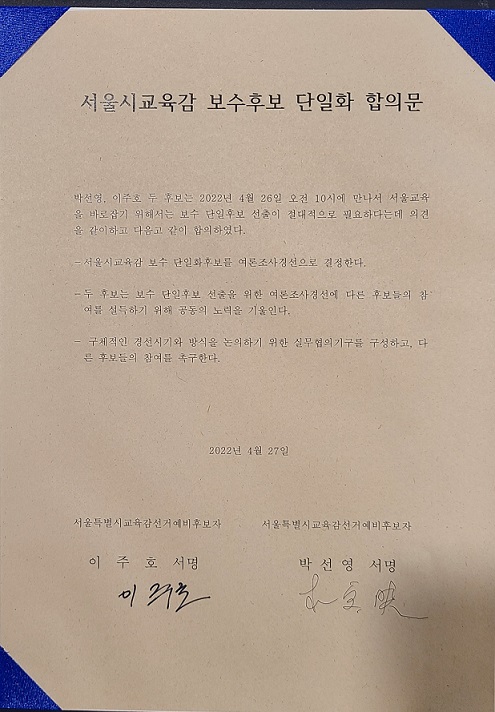 서울시교육감 보수후보 단일화 합의문
박선영, 이주호 두 후보는 2022년 4월 26일 오전 10시에 만나서 서울교육
을 바로잡기 위해서는 보수 단일후보 선출이 절대적으로 필요하다는데 의견
을 같이하고 다음고 같이 합의하였다.
-서울시교육감 보수 단일화후보를 여론조사경선으로 결정한다.
-두 후보는 보수 단일후보 선출을 위한 여론조사경선에 다른 후보들의 참
여를 설득하기 위해 공동의 노력을 기울인다.
- 구체적인 경선시기와 방식을 논의하기 위한 실무협의기구를 구성하고, 다
른 후보들의 참여를 촉구한다.
2022년 4월 27일
서울특별시교육감선거예비후보자 서울특별시교육감선거예비후보자
이 주 호 서명 박 선 영 서명
이주호